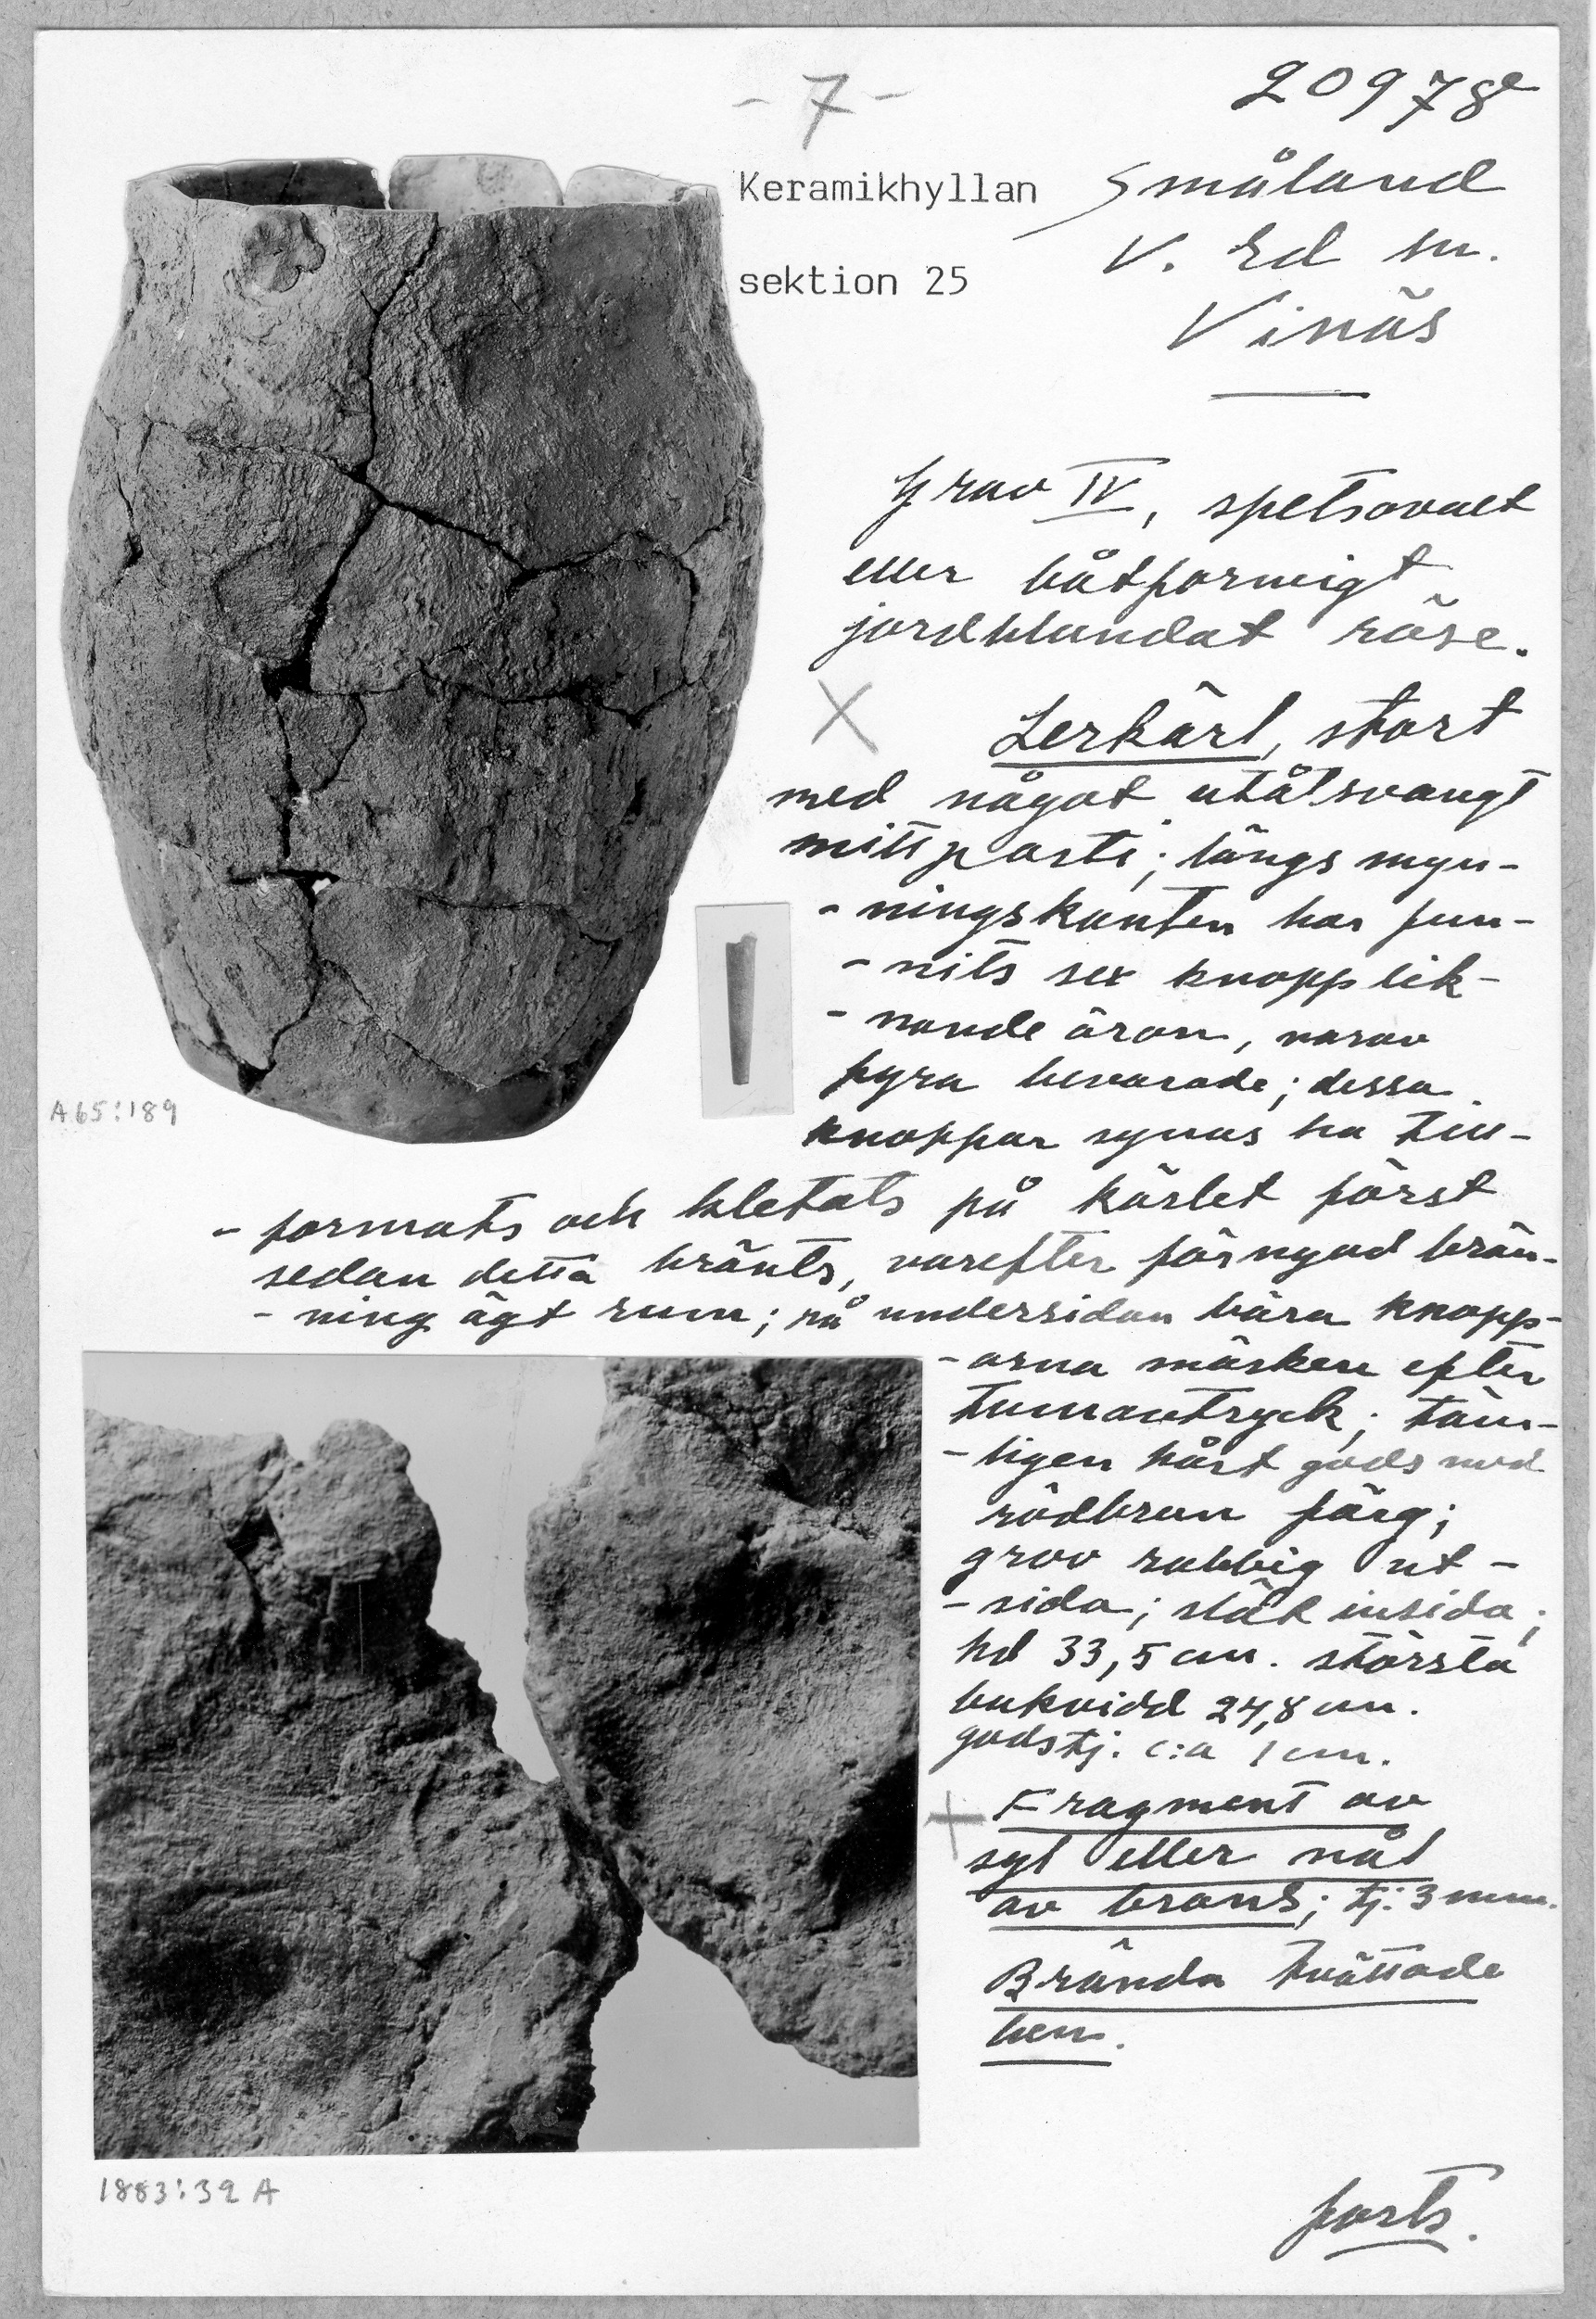 - 7 -
20978
Keramikhyllan
sektion 25
Småland
V. Ed sn.
Vinäs
Grav IV, spetsovalt
eller båtformigt
jordblandat röse.
X Lerkärl, stort
med något utåtsvängt
mittparti; längs myn-
-ningskanten har fun-
-nits sex knopplik-
-nande öron, varav
fyra bevarade; dessa
knoppar synas ha till-
-formats och kletats på kärlet först
sedan detta bränts, varefter förnyad brän-
-ning ägt rum; på undersidan bära knopp-
-arna märken efter
tumavtryck; täm-
-ligen hårt gods med
rödbrun färg;
grov rabbig ut-
-sida; slät insida;
hd 33,5 cm. största
bukvidd 24,8 cm.
godstj. c:a 1 cm.
+ Fragment av
syl eller nål
av brons; tj. 3 mm.
Brända tvättade
ben.
forts.
A65:189
1883:32 A